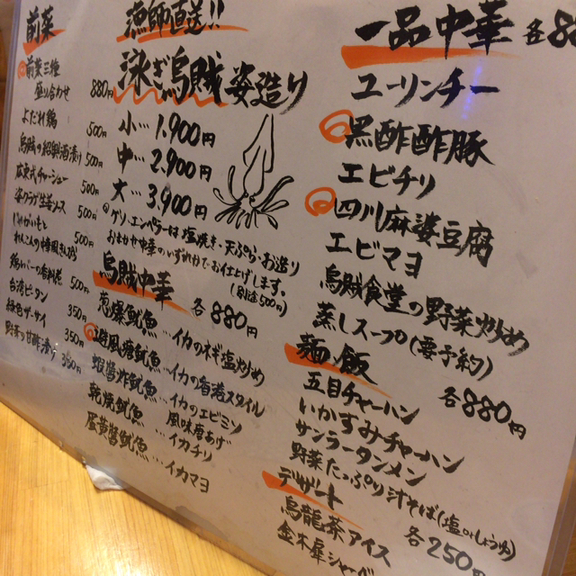 前菜
前菜三種
盛り合わせ 880円
よだれ鶏 500円
烏賊の紹興酒漬け 500円
広東式チャーシュー 500円
クラゲ生姜ソース 500円
じゃがいもと
れんこんの中華風きんぴら 500円
鶏レバーの香料煮 500円
台湾ピータン 350円
緑色ザーサイ 350円
野菜の甘酢漬け 350円
漁師直送!!
泳ぎ烏賊 姿造り
小…1,900円
中…2,900円
大…3,900円
ゲソ・エンペラーは塩焼き・天ぷら・お造り
おまかせ中華のいずれかでお仕上げします。
(別途500円)
烏賊中華 各880円
葱爆魷魚…イカのネギ塩炒め
避風塘魷魚…イカの香港スタイル
蝦醤炸魷魚…イカのエビミソ
風味唐あげ
乾焼魷魚…イカチリ
蛋黄醤魷魚…イカマヨ
一品中華 各88
ユーリンチー
黒酢酢豚
エビチリ
四川麻婆豆腐
エビマヨ
烏賊食堂の野菜炒め
蒸しスープ(要予約)
麺・飯 各880円
五目チャーハン
いかすみチャーハン
サンラータンメン
野菜たっぷり汁そば(塩orしょうゆ)
デザート 各250円
烏龍茶アイス
金木犀シャーベ